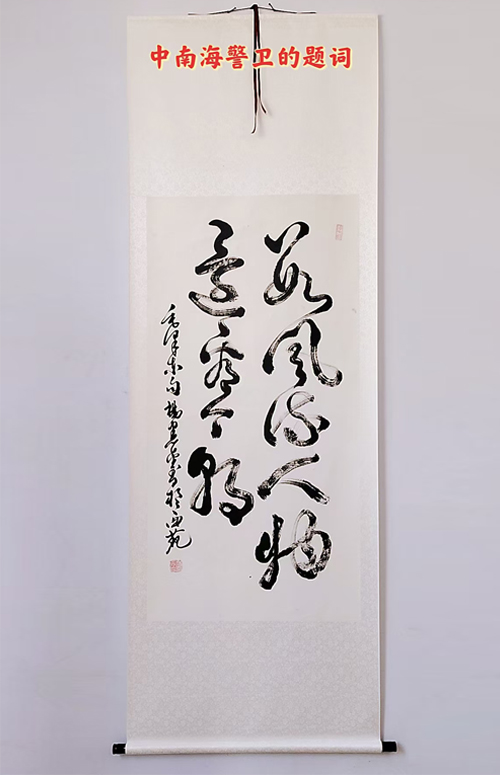 中南海警卫的题词
数风流人物
还看今朝
毛泽东句 杨书于西苑